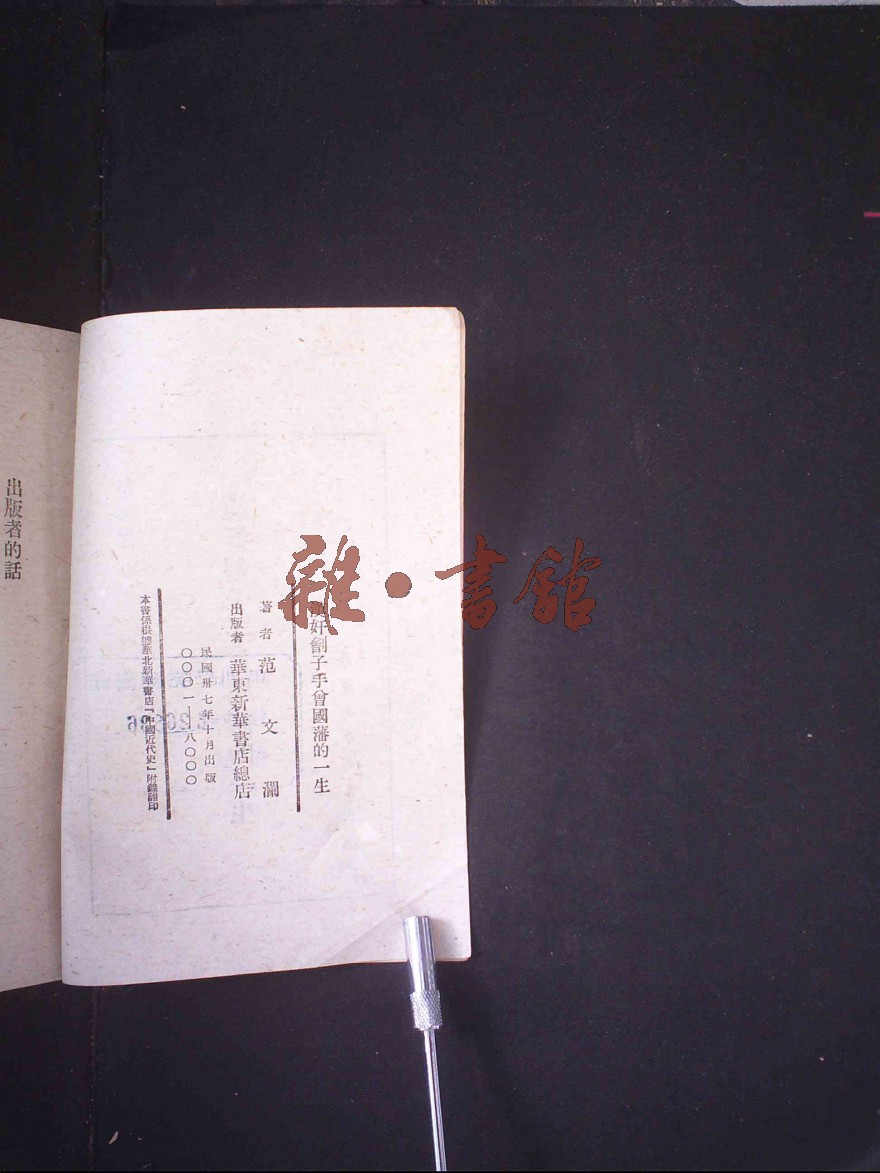 漢奸劊子手曾國藩的一生
著者 范文瀾
出版者 華東新華書店總店
民國卅七年十月出版
〇〇〇一—八〇〇〇
本書係根據華北新華書店「中國近代史」附錄翻印
出版者的話
雜·書館